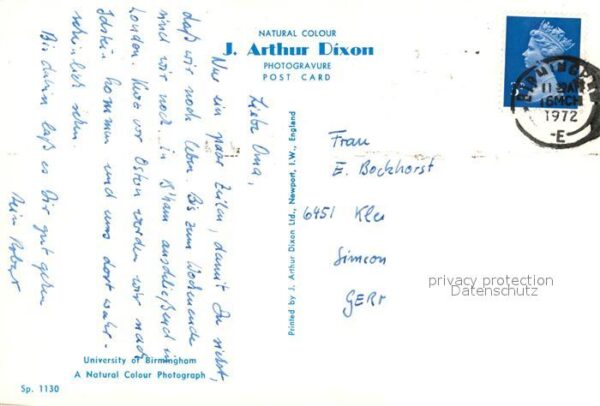 NATURAL COLOUR
J. Arthur Dixon
PHOTOGRAVURE
POST CARD
Liebe Oma,
Nur ein paar Zeilen, damit Du siehst,
daß wir noch leben. Bis zum Wochenende
sind wir noch in B'ham anschließend in
London. Kurz vor Ostern werden wir nach
Idstein kommen und uns dort wahr-
scheinlich sehen.
Bis dahin laß es Dir gut gehen
Dein Robert
Printed by J. Arthur Dixon Ltd., Newport, I.W., England
BIRMINGHAM
16 MCH
1972
-E
Frau
E. Bockhorst
6451
Simeon
privacy protection
Datenschutz
University of Birmingham
A Natural Colour Photograph
Sp. 1130